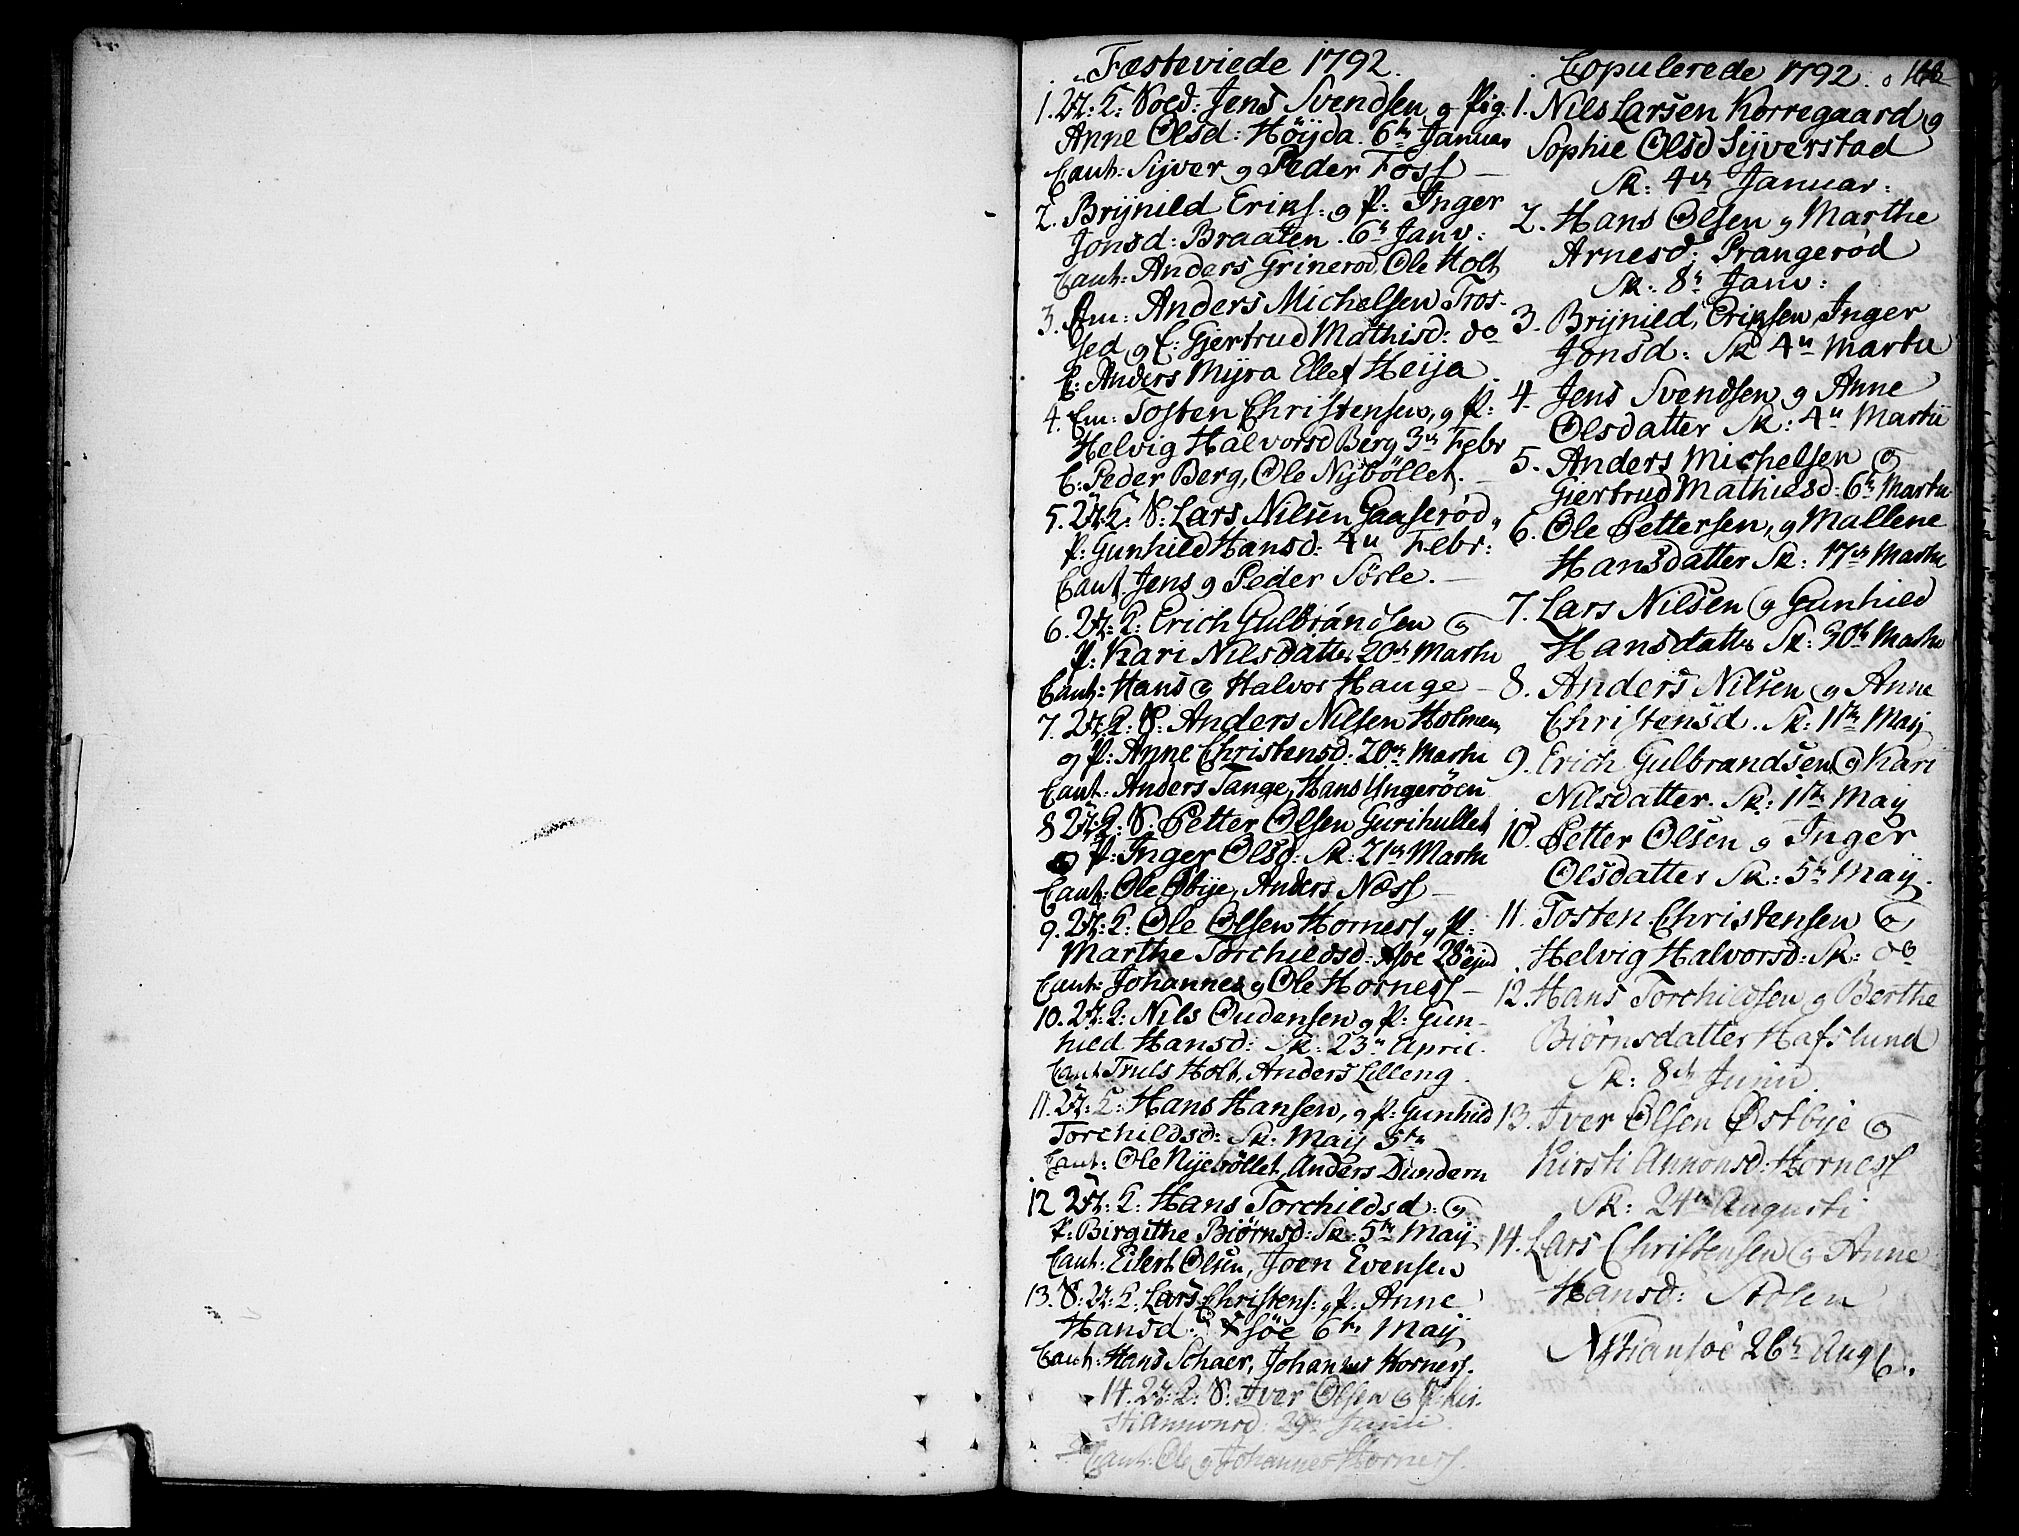 Fæsteviede 1792.
1. Ur: K: Sold: Jens Svendsen og Pig:
Anne Olsd: Höyda. 6te Januar
Caut: Syver og Peder Foss
2. Brynild Eriks: og P: Inger
Jonsd: Braaten. 6te Janv:
Caut: Anders Grinerod, Ole Holt
3. Em: Anders Michelsen Tros-
sed og E: Gjertrud Mathisd: do
C: Anders Myra Ellef Heija
4. Em: Tosten Christensen, og P:
Helvig Halvorsd Berg 3die Febr
C: Peder Berg, Ole Nyböllet.
5. U: K: S: Lars Nilsen Gaaserød og
P: Gunhild Hansd: 4de Febr:
Caut Jens og Peder Sörle.
6. U: K: Erich Gulbrandsen og
P: Kari Nilsdatter 20de Martii
Caut: Hans og Halvor Hauge
7. U: K: S: Anders Nilsen Holmen
og P: Anne Christensd: 20de Martii
Caut: Anders Tange, Hans Yngeröen
8 U: K: S: Petter Olsen Gurihullet
og P: Inger Olsd: Sk: 21de Martii
Caut: Ole Øbye, Anders Næss
9. U: K: Ole Olsen Horness og P:
Marthe Torchildsd: 28de
Caut: Johannes og Ole Horness
10. U: K: Nils Oudensen og P: Gun-
hild Hansd: Sk: 23de April.
Caut Truls Holt, Anders Lilleng.
11. U: K: Hans Hansen, og P: Gunhild
Torchildsd: Sk: Maij 5te
Caut: Ole Nyeböllet, Anders Dundern
12 U: K: Hans Torchildsd: og
P: Birgithe Biørnsd: Sk: 5te Maij
Caut: Eilert Olsen, Joen Evensen
13. S: U: K: Lars Christens: og P: Anne
Hansd: 6te Maij
Caut: Hans Schaer, Johannes Horness.
14. U: K: S: Iver Olsen og P: Kir-
sti Annonsd: 29de Junii.
Caut: Ole og Johannes Horness.
Copulerede 1792. 166
1. Nils Larsen Korregaard og
Sophie Olsd Syverstad
Sk: 4de Januar:
2. Hans Olsen og Marthe
Arnesd: Prangerød
Sk: 8de Janv:
3. Brynild Eriksen, Inger
Jonsd: Sk 4de Martii
4. Jens Svendsen og Anne
Olsdatter Sk: 4de Martii
5. Anders Michelsen og
Giertrud Mathiesd: 6te Martii
6. Ole Pettersen, og Mallene
Hansdatter Sk: 17de Martii
7. Lars Nilsen og Gunhild
Hansdatter Sk: 30te Martii
8. Anders Nilsen og Anne
Christensd. Sk: 11te Maij
9. Erich Gulbrandsen og Kari
Nilsdatter. Sk: 11te Maij
10. Petter Olsen og Inger
Olsdatter Sk: 5te Maij.
11. Tosten Christensen og
Helvig Halvorsd: Sk: do
12. Hans Torchildsen og Berthe
Biørnsdatter Hafslund
Sk: 8de Junii.
13. Iver Olsen Østbye og
Kirsti Annonsd: Horness
Sk: 24de Augusti
14. Lars Christensen og Anne
Hansd: Stolen
26de Aug